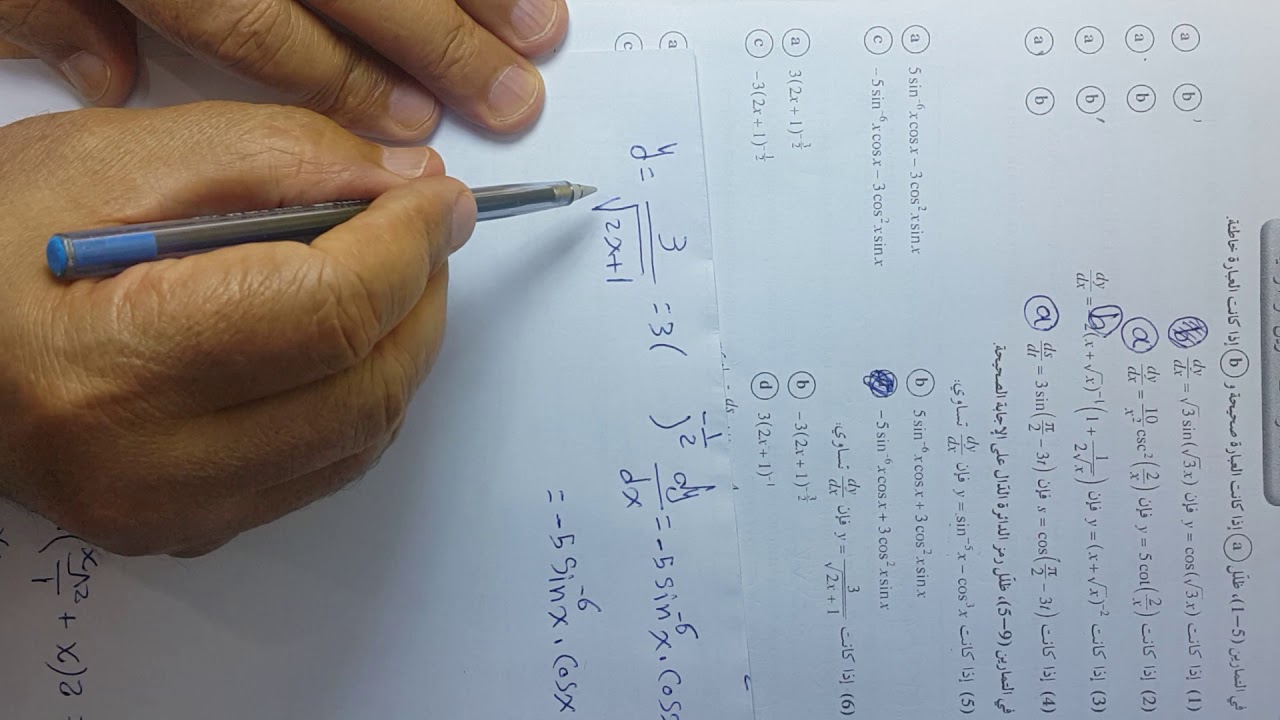 في التمارين (1-5)، ظلّل ⓐ إذا كانت العبارة صحيحة و ⓑ إذا كانت العبارة خاطئة.
(1) إذا كانت y = cos(√3 x) فإن dy/dx = √3 sin(√3 x) ⓑ ⓐ
(2) إذا كانت y = 5 cot(2/x) فإن dy/dx = 10/x² csc²(2/x) ⓐ ⓑ ⓐ
(3) إذا كانت y = (x + √x)⁻² فإن dy/dx = 2(x + √x)⁻¹(1 + 1/(2√x)) ⓑ ⓑ ⓐ
(4) إذا كانت s = cos(π/2 − 3t) فإن ds/dt = 3 sin(π/2 − 3t) ⓐ ⓑ ⓐ
في التمارين (5-9)، ظلّل رمز الدائرة الدّال على الإجابة الصحيحة.
(5) إذا كانت y = sin⁻⁵x − cos³x فإن dy/dx تساوي:
ⓐ 5 sin⁻⁶ x cos x − 3 cos² x sin x ⓑ 5 sin⁻⁶ x cos x + 3 cos² x sin x
ⓒ −5 sin⁻⁶ x cos x − 3 cos² x sin x −5 sin⁻⁶ x cos x + 3 cos² x sin x
(6) إذا كانت y = 3/√(2x + 1) فإن dy/dx تساوي:
ⓐ 3(2x + 1)^(−3/2) ⓑ −3(2x + 1)^(−3/2)
ⓒ −3(2x + 1)^(−1/2) ⓓ 3(2x + 1)⁻¹
ⓐ
ⓒ
y = 3/√(2x+1) = 3( )^(−1/2) dy/dx = −5 sin⁻⁶x . Cos
= −5 Sin⁻⁶x . Cosx